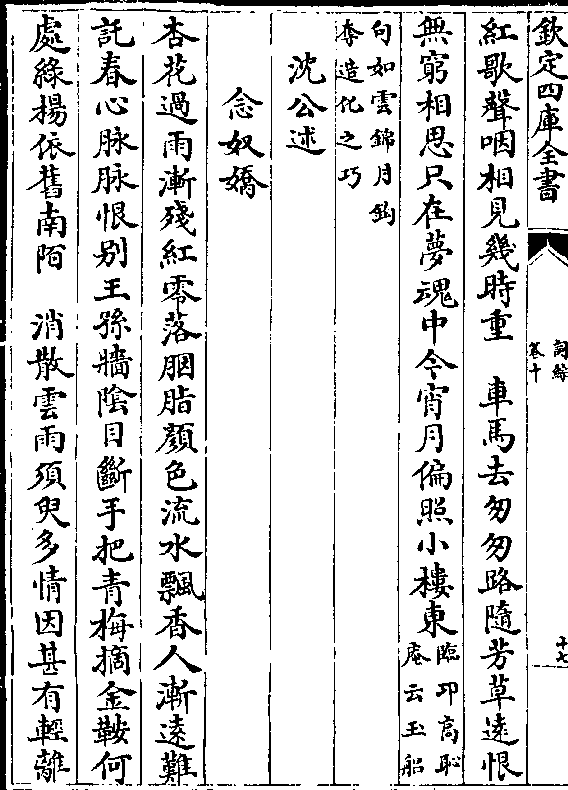 欽定四庫全書
詞綜
卷十
十七
紅歌聲咽相見幾時重　車馬去匆匆路隨芳草遠恨
無窮相思只在夢魂中今宵月偏照小樓東臨卭高恥
庵云玉船
句如雲錦月鈎
李造化之巧
沈公述
念奴嬌
杏花過雨漸殘紅零落胭脂顔色流水飄香人漸遠難
託春心脉脉恨别王孫牆隂目斷手把青梅摘金鞍何
處緑楊依舊南陌　消散雲雨須臾多情因甚有輕離